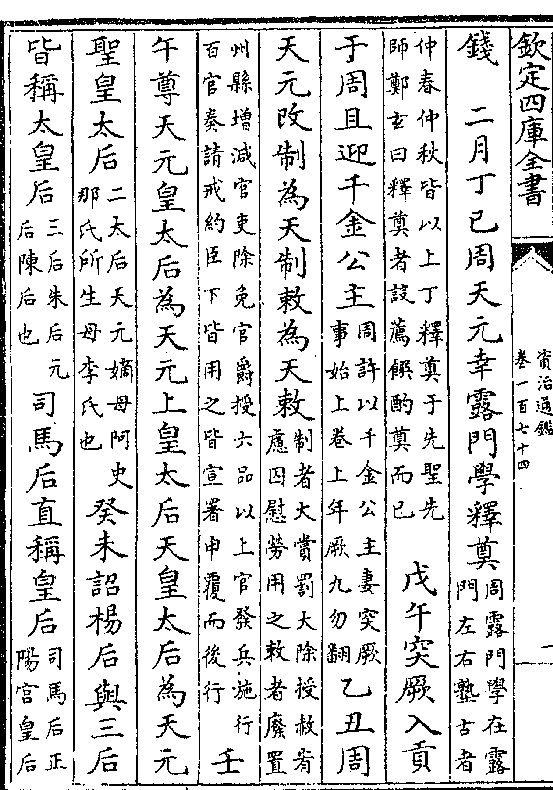 欽定四庫全書
資治通鑑
卷一百七十四
一
錢　二月丁巳周天元幸露門學釋奠
周露門學在露
門左右塾古者
仲春仲秋皆以上丁釋奠于先聖先
師鄭玄曰釋奠者設薦饌酌奠而已
戊午突厥入貢
于周且迎千金公主
周許以千金公主妻突厥
事始上卷上年厥九勿翻
乙丑周
天元改制為天制敕為天敕
制者大賞罰大除授赦宥
慮囚慰勞用之敕者廢置
州縣增減官吏除免官爵授六品以上官發兵施行
百官奏請戒約臣下皆用之皆宣署申覆而後行
壬
午尊天元皇太后為天元上皇太后天皇太后為天元
聖皇太后
二太后天元嫡母阿史
那氏所生母李氏也
癸未詔楊后與三后
皆稱太皇后
三后朱后元
后陳后也
司馬后直稱皇后
司馬后正
陽宮皇后